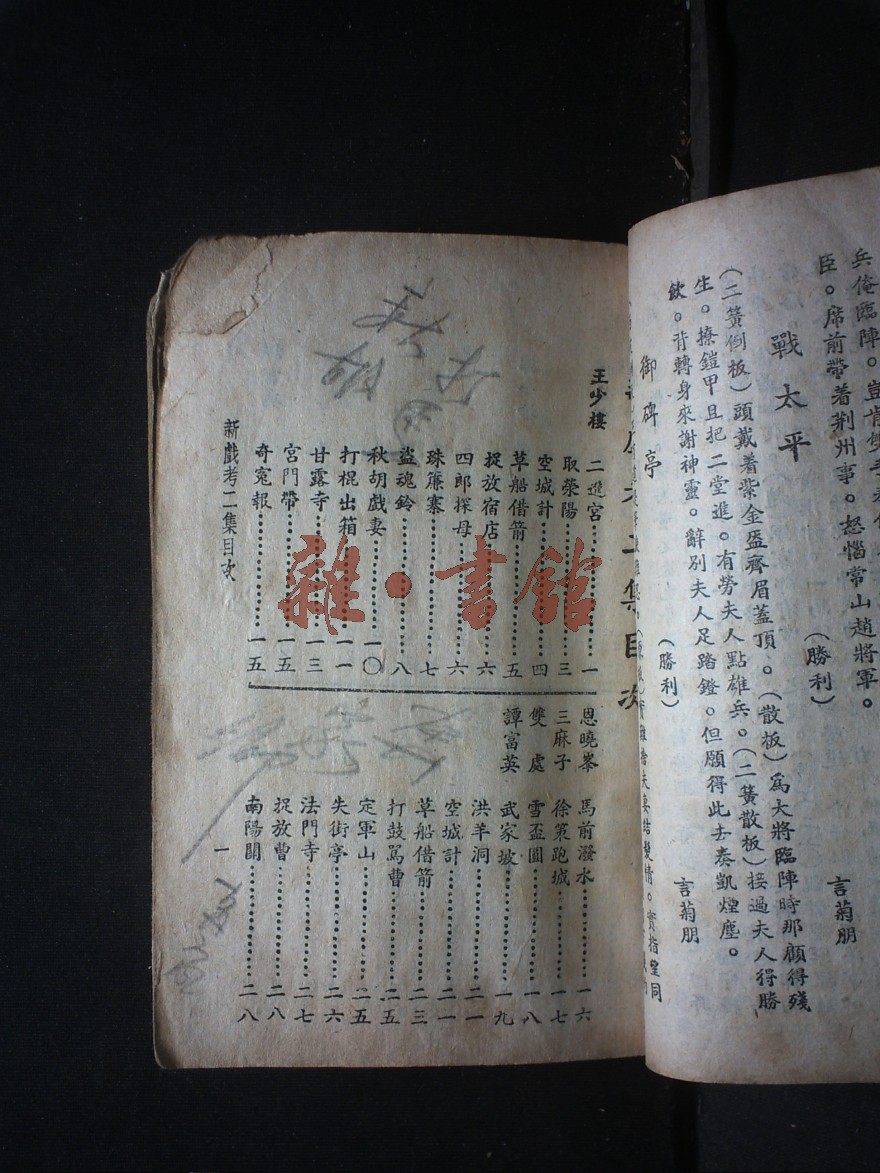 兵俺臨陣。豈肯雙手
臣。席前帶着荆州事。怒惱常山趙將軍。
（勝利）
言菊朋
戰太平
（二簧倒板）頭戴着紫金盔齊眉蓋頂。（散板）爲大將臨陣時那顧得殘
生。撩鎧甲且把二堂進。有勞夫人點雄兵。（二簧散板）接過夫人得勝
飲。背轉身來謝神靈。辭別夫人足踏鐙。但願得此去奏凱煙塵。
（勝利）
言菊朋
御碑亭
二集目次
王少樓
二進宮……一
取滎陽……三
空城計……四
草船借箭……五
捉放宿店……六
四郎探母……六
珠簾寨……七
盜魂鈴……八
秋胡戲妻……一〇
打棍出箱……一一
甘露寺……一三
宮門帶……一五
奇寃報……一五
恩曉峯
馬前潑水……一六
三麻子
徐策跑城……一七
雙處
雪盃圓……一八
譚富英
武家坡……一九
洪羊洞……二一
空城計……二一
草船借箭……二三
打鼓罵曹……二五
定軍山……二五
失街亭……二六
法門寺……二七
捉放曹……二八
南陽關……二八
新戲考二集目次
一
雜·書館